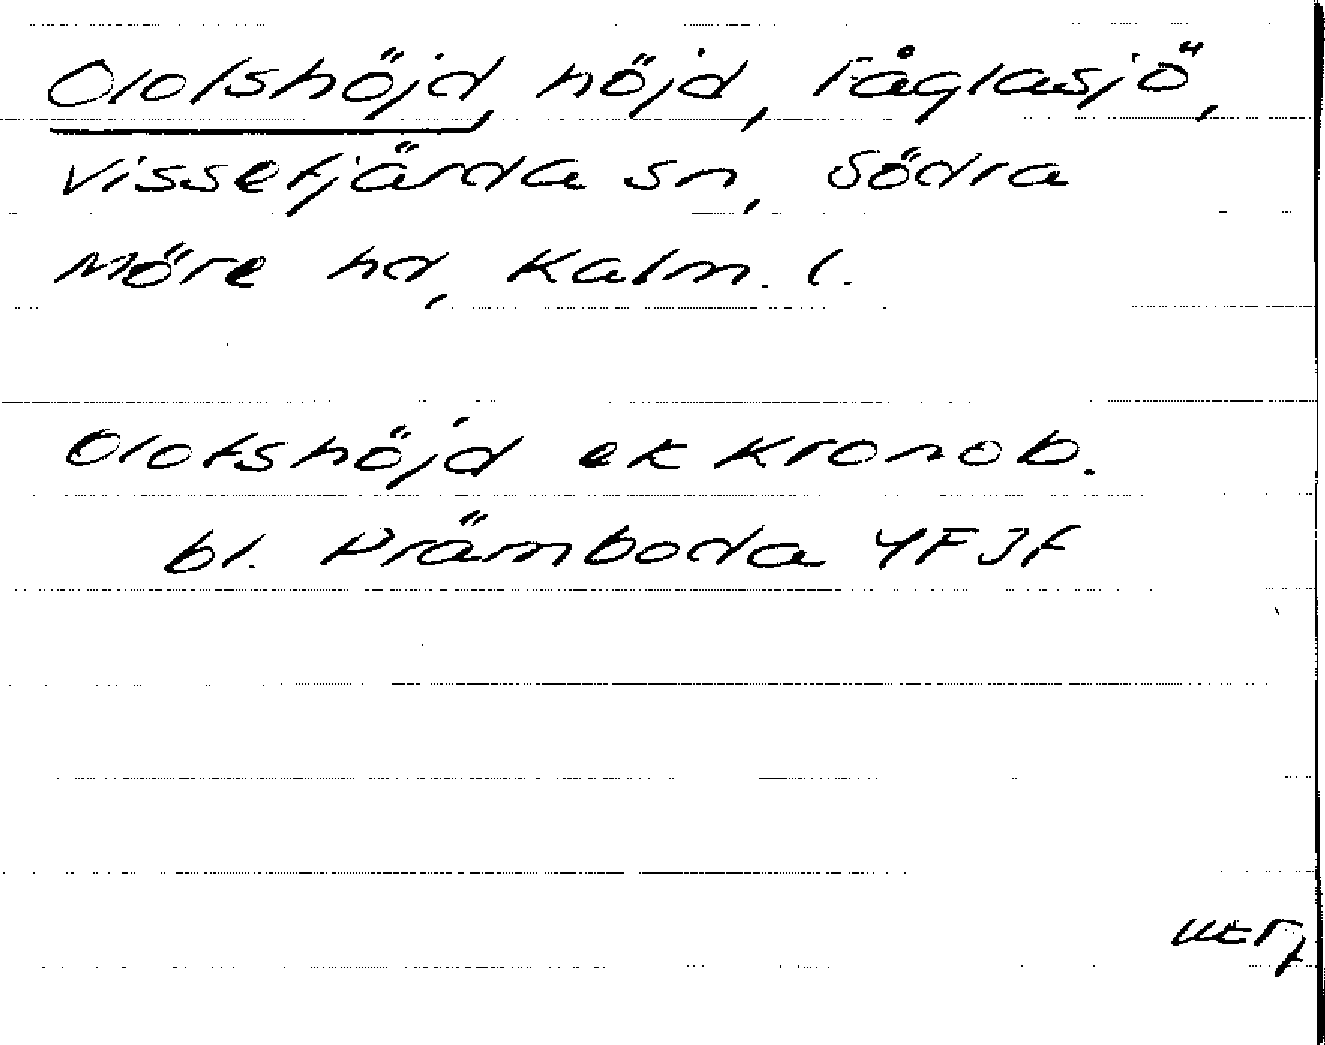 Olofshöjd, höjd, Fåglasjö,
Vissefjärda sn, Södra
Möre hd, Kalm. l.
Olofshöjd ek Kronob.
bl. Prämboda 4F3f